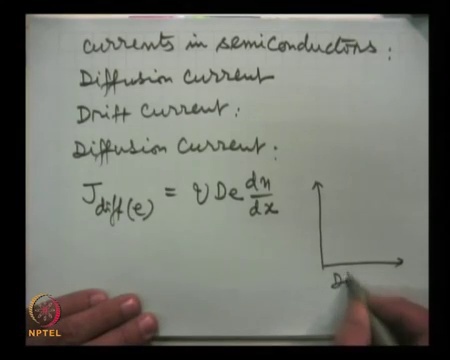 Currents in semiconductors:
Diffusion Current
Drift Current:
Diffusion Current:
J diff(e) = q De dn/dx
Di
NPTEL